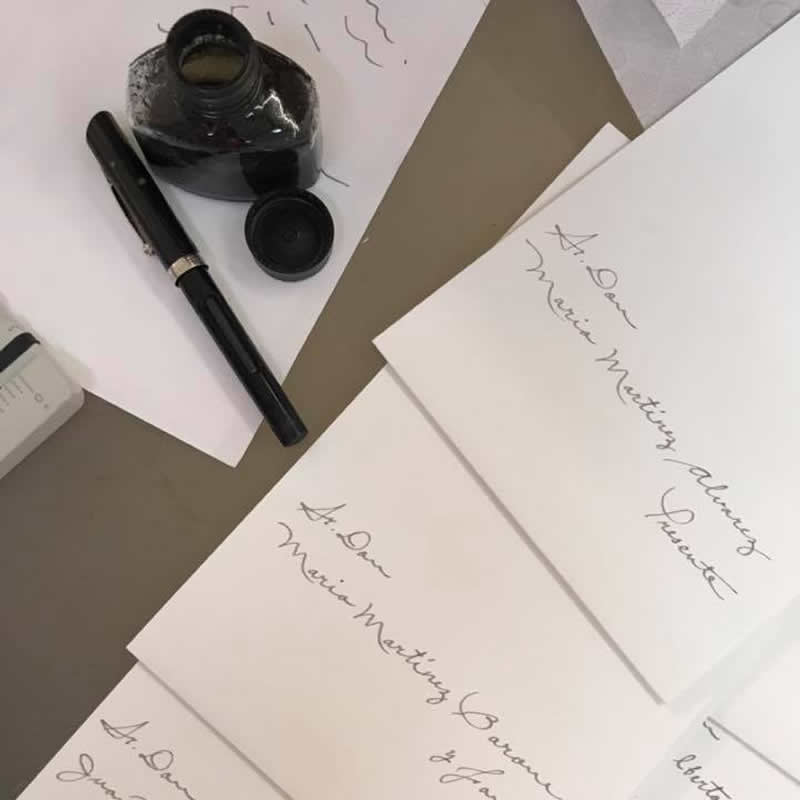 Sr. Don
Maria Martínez Alvarez
Presente
Sr. Don
Maria Martínez Barone
y
Sr. Don